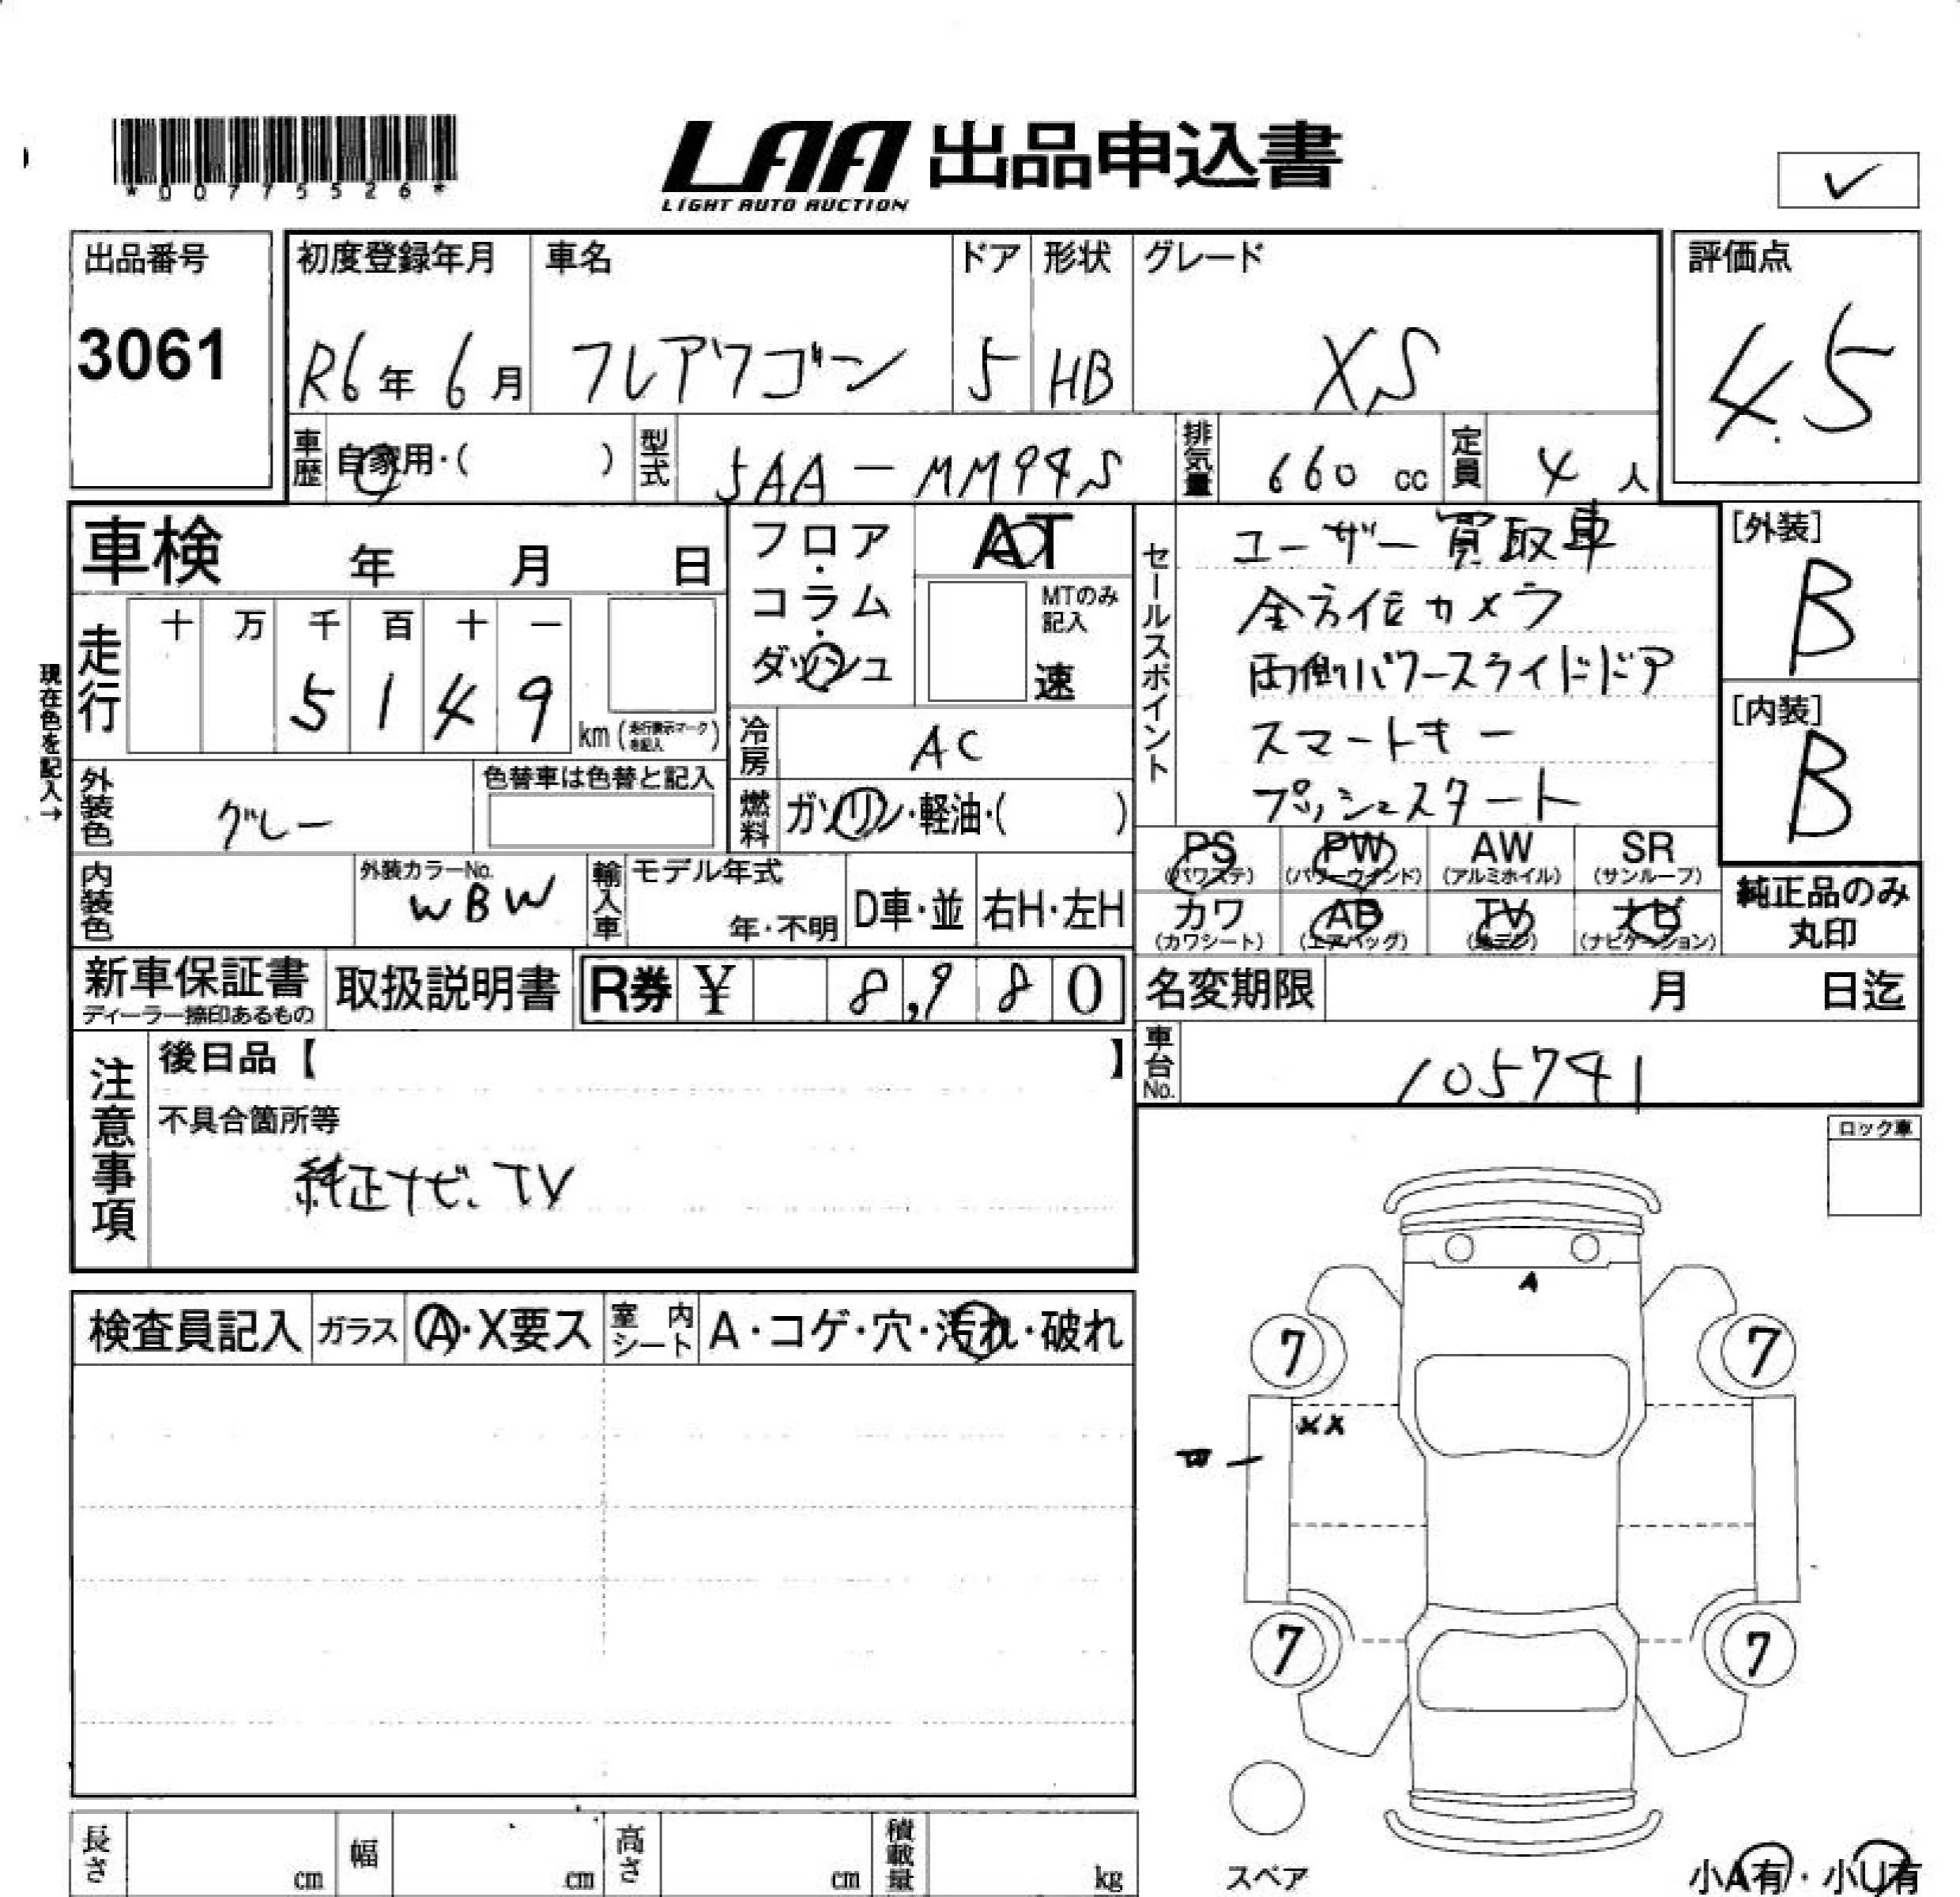 *00775526*
LAA 出品申込書
LIGHT AUTO AUCTION
✓
出品番号
3061
初度登録年月
R6年 6月
車名
フレアワゴン
ドア
5
形状
HB
グレード
XS
評価点
4.5
車歴
自家用・( )
型式
5AA-MM94S
排気量
660 cc
定員
4 人
車検 年 月 日
フロア・コラム・ダッシュ
AT
MTのみ記入
速
セールスポイント
ユーザー買取車
全方位カメラ
両側パワースライドドア
スマートキー
プッシュスタート
[外装]
B
[内装]
B
現在色を記入→
走行
十 万 千 百 十 一
5 1 4 9
km
冷房
AC
外装色
グレー
色替車は色替と記入
燃料
ガソリン・軽油・( )
内装色
外装カラーNo.
WBW
輸入車
モデル年式
年・不明
D車・並
右H・左H
PS
(パワステ)
PW
(パワーウインド)
AW
(アルミホイル)
SR
(サンルーフ)
カワ
(カワシート)
AB
(エアバッグ)
TV
(地デジ)
ナビ
(ナビゲーション)
純正品のみ
丸印
新車保証書
ディーラー捺印あるもの
取扱説明書
R券 ¥ 8,980
名変期限 月 日迄
車台No.
105741
注意事項
後日品【 】
不具合箇所等
純正ナビ、TV
ロック車
検査員記入
ガラス
A・X要ス
室内シート
A・コゲ・穴・汚れ・破れ
A
7
7
XX
W
7
7
スペア
小A有・小U有
長さ cm
幅 cm
高さ cm
積載量 kg